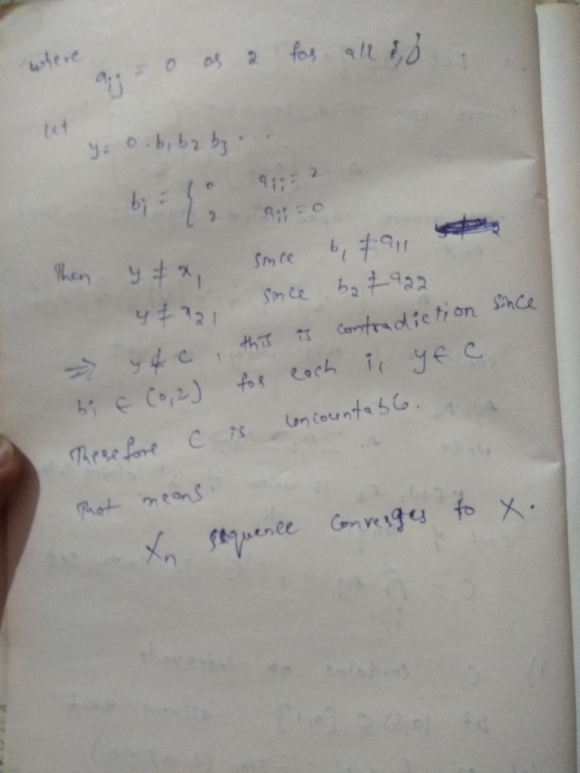 where
a_ij = 0 or 2 for all i,j
let
y = 0.b₁b₂b₃...
b_i = { 0 a_ii = 2
2 a_ii = 0
Then y ≠ x₁ since b₁ ≠ a₁₁
y ≠ x₂, since b₂ ≠ a₂₂
⇒ y ∉ C, this is contradiction since
b_i ∈ (0,2) for each i, y ∈ C
Therefore C is uncountable.
That means.
X_n sequence converges to X.